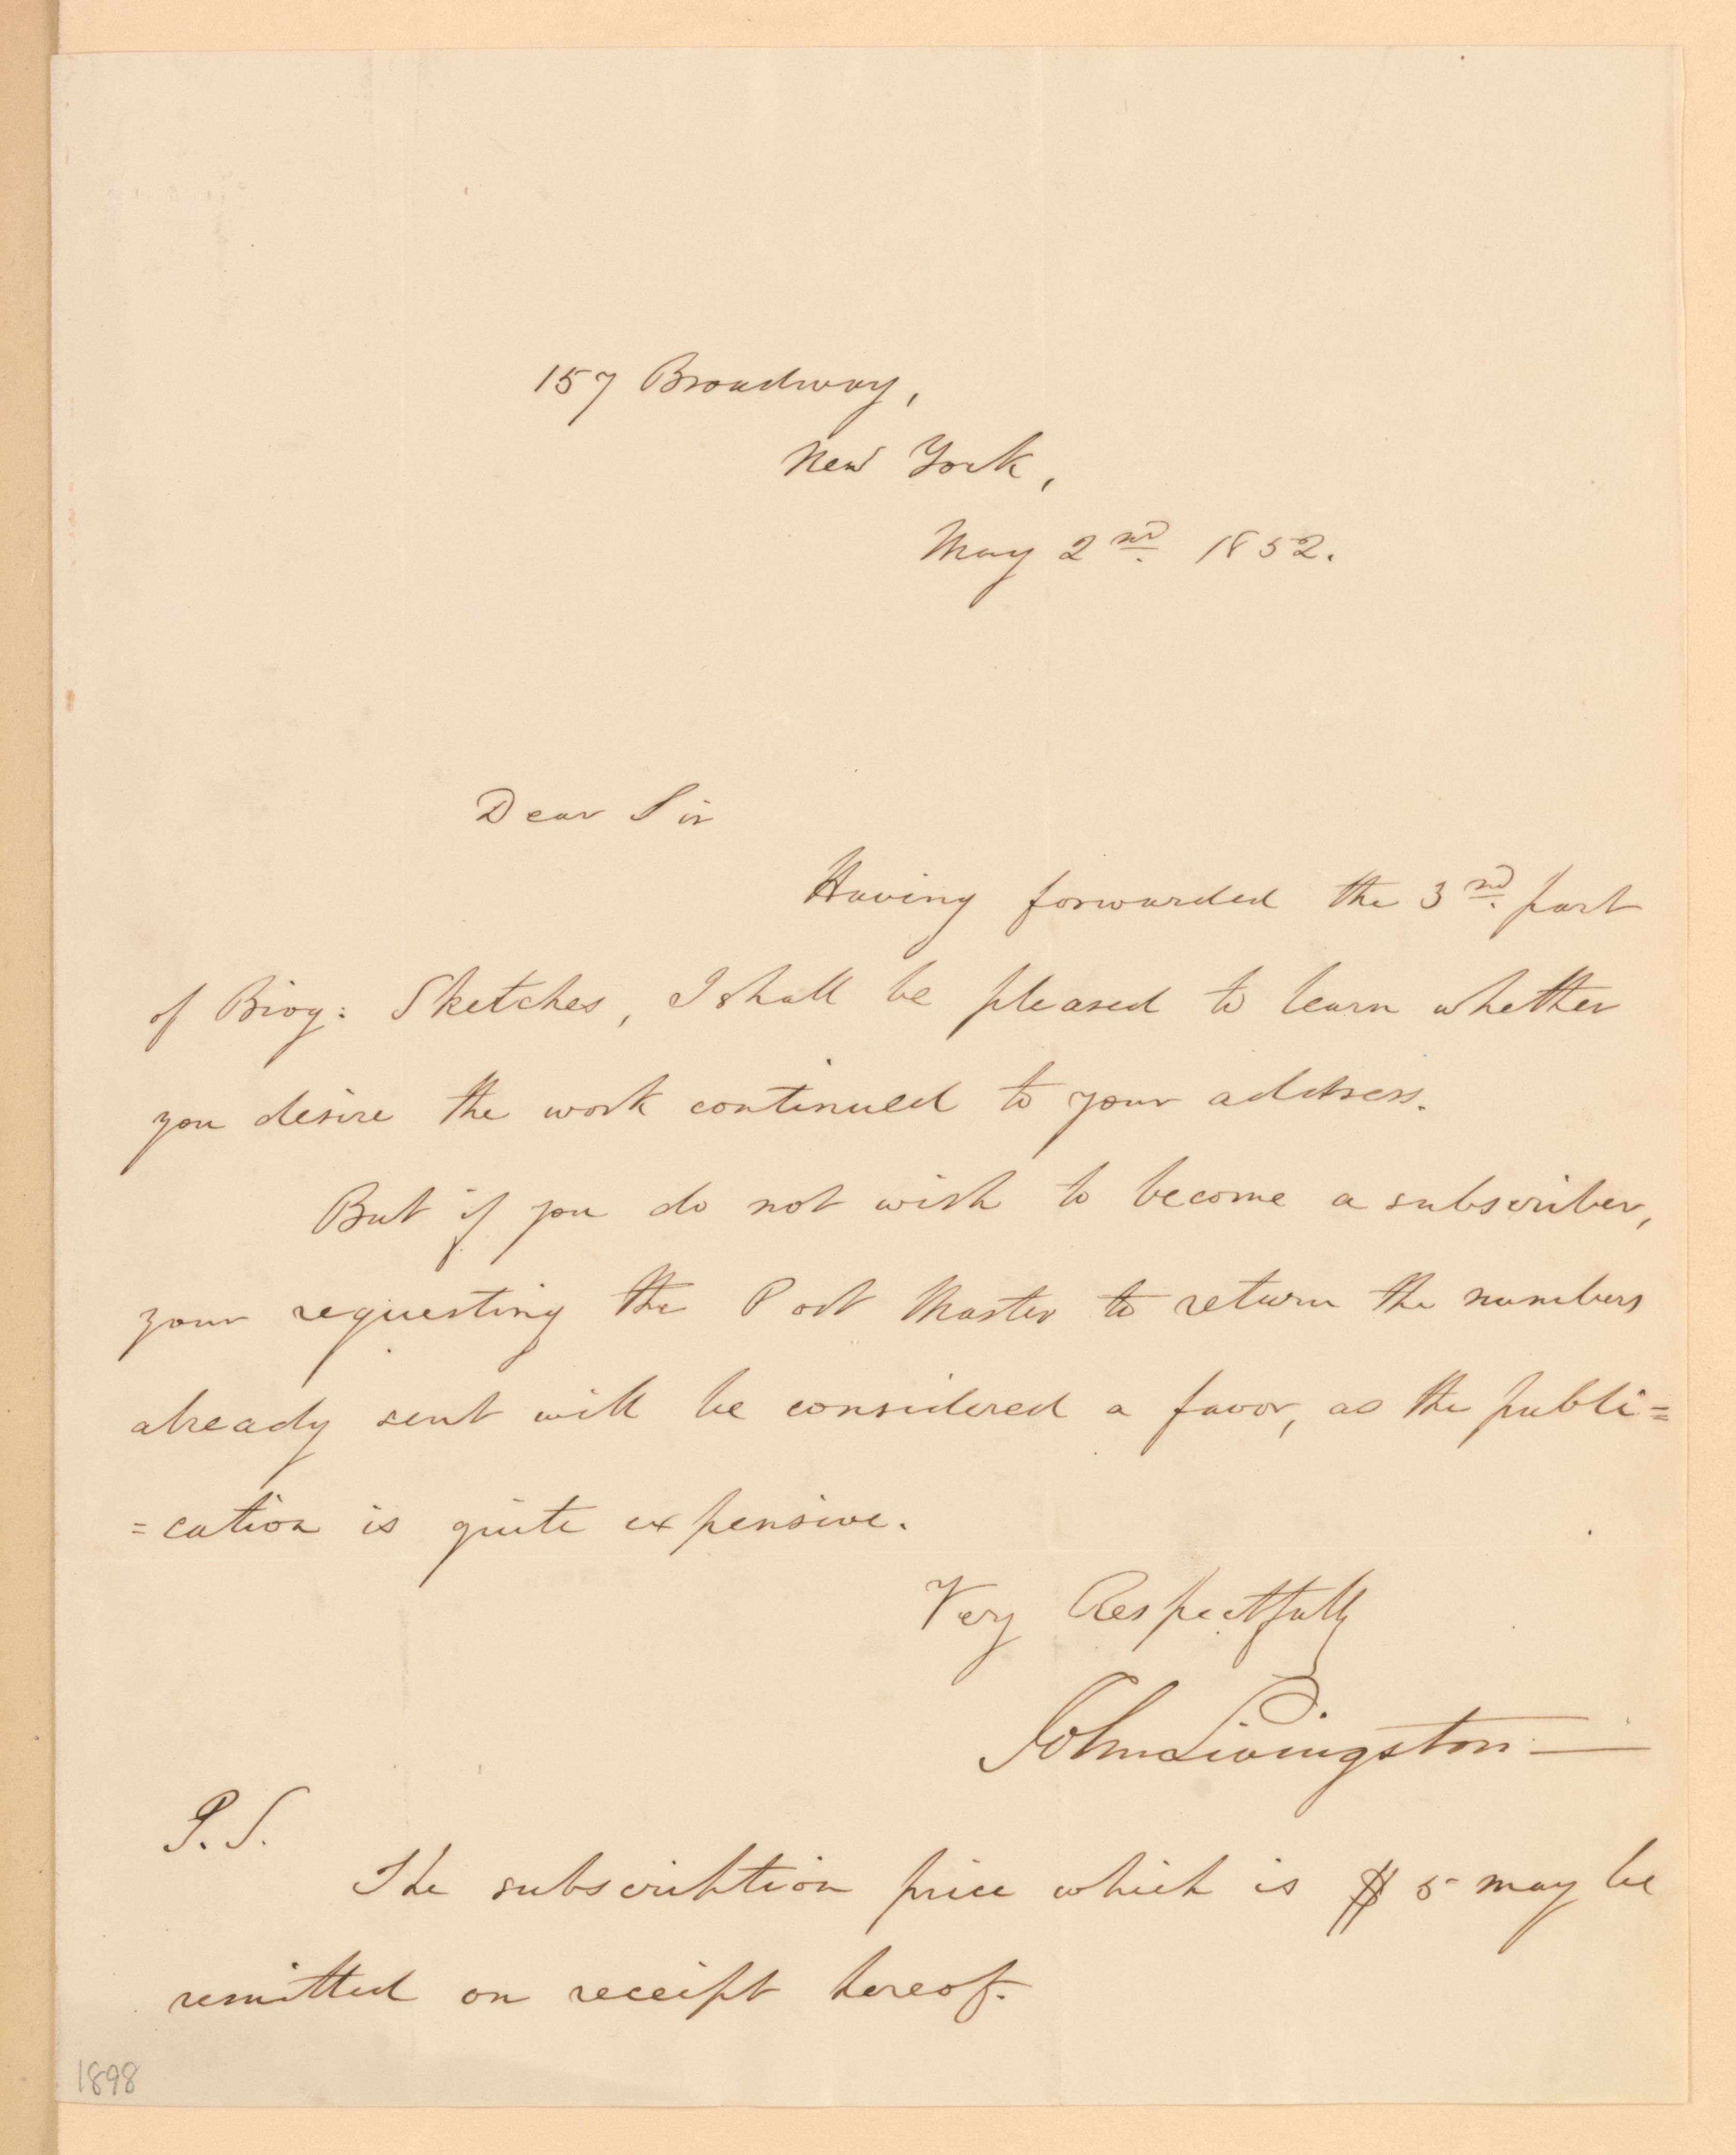 157 Broadway,
New York,
May 2nd 1852.
Dear Sir
Having forwarded the 3nd part
of Biog: Sketches, I shall be pleased to learn whether
you desire the work continued to your address.
But if you do not wish to become a subscriber,
your requesting the Post Master to return the numbers
already sent will be considered a favor, as the publi=
=cation is quite expensive.
Very Respectfully
John Livingston
P.S.
The subscription price which is $5 may be
remitted on receipt hereof.
1898